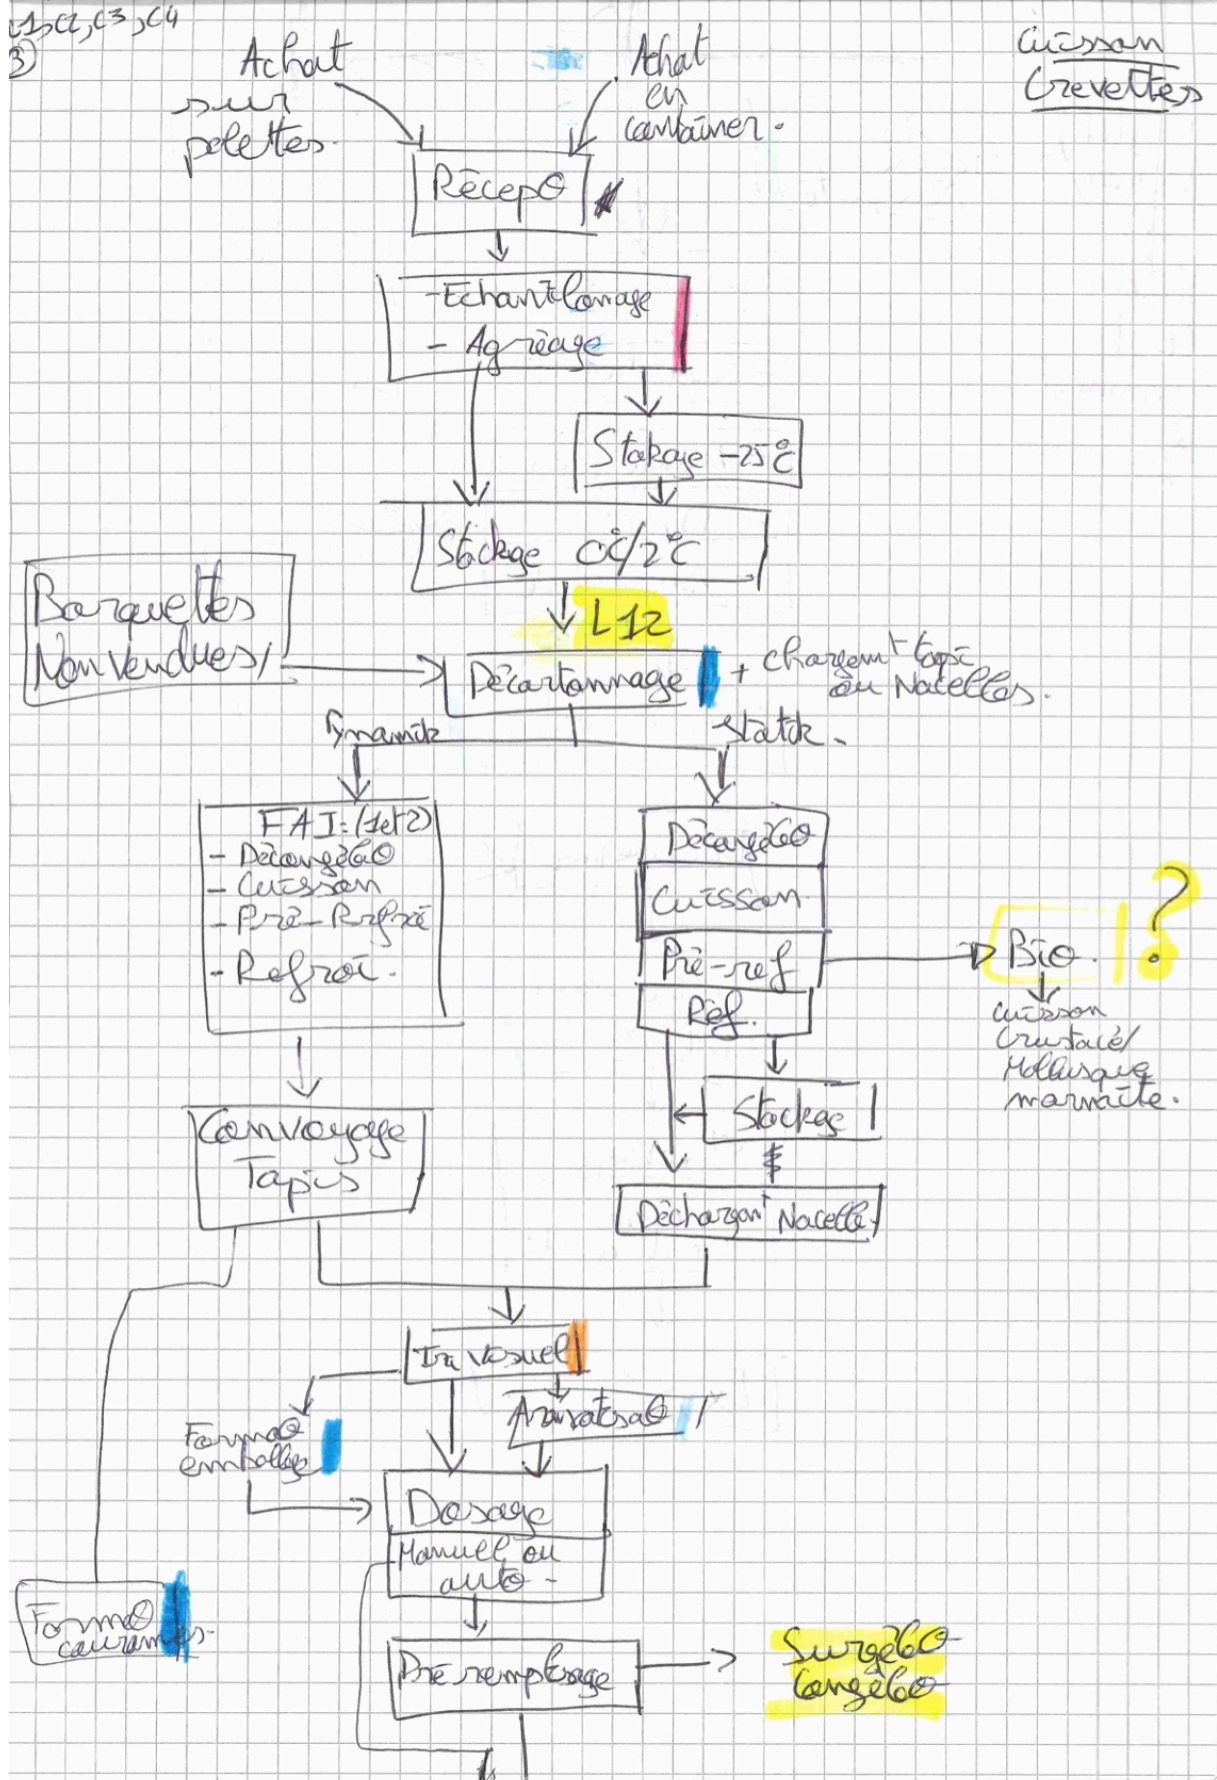 C1, C2, C3, C4
3
Cuisson
Crevettes
Achat
sur
palettes.
Achat
en
container.
Récepθ
- Echantillonnage
- Agréage
Stokage -25°C
Stockage 0°C/2°C
L12
Barquettes
Non Vendues
Décartonnage
+ chargemt tapis
ou Nacelles.
Dynamik
Statik.
FAI: (1et2)
- Décongélaθ
- Cuisson
- Pré-Refroi
- Refroi.
Décongélaθ
Cuisson
Pré-ref
Réf.
Bio. ?
cuisson
Crustacé/
Mollusque
marmite.
Stockage
Convoyage
Tapis
Déchargemt Nacelle
Tri Visuel
Aromatisaθ
Formaθ
emballage
Dosage
Manuel ou
auto -
Formaθ
couronnes.
Pré remplissage
Surgélaθ
Congélaθ